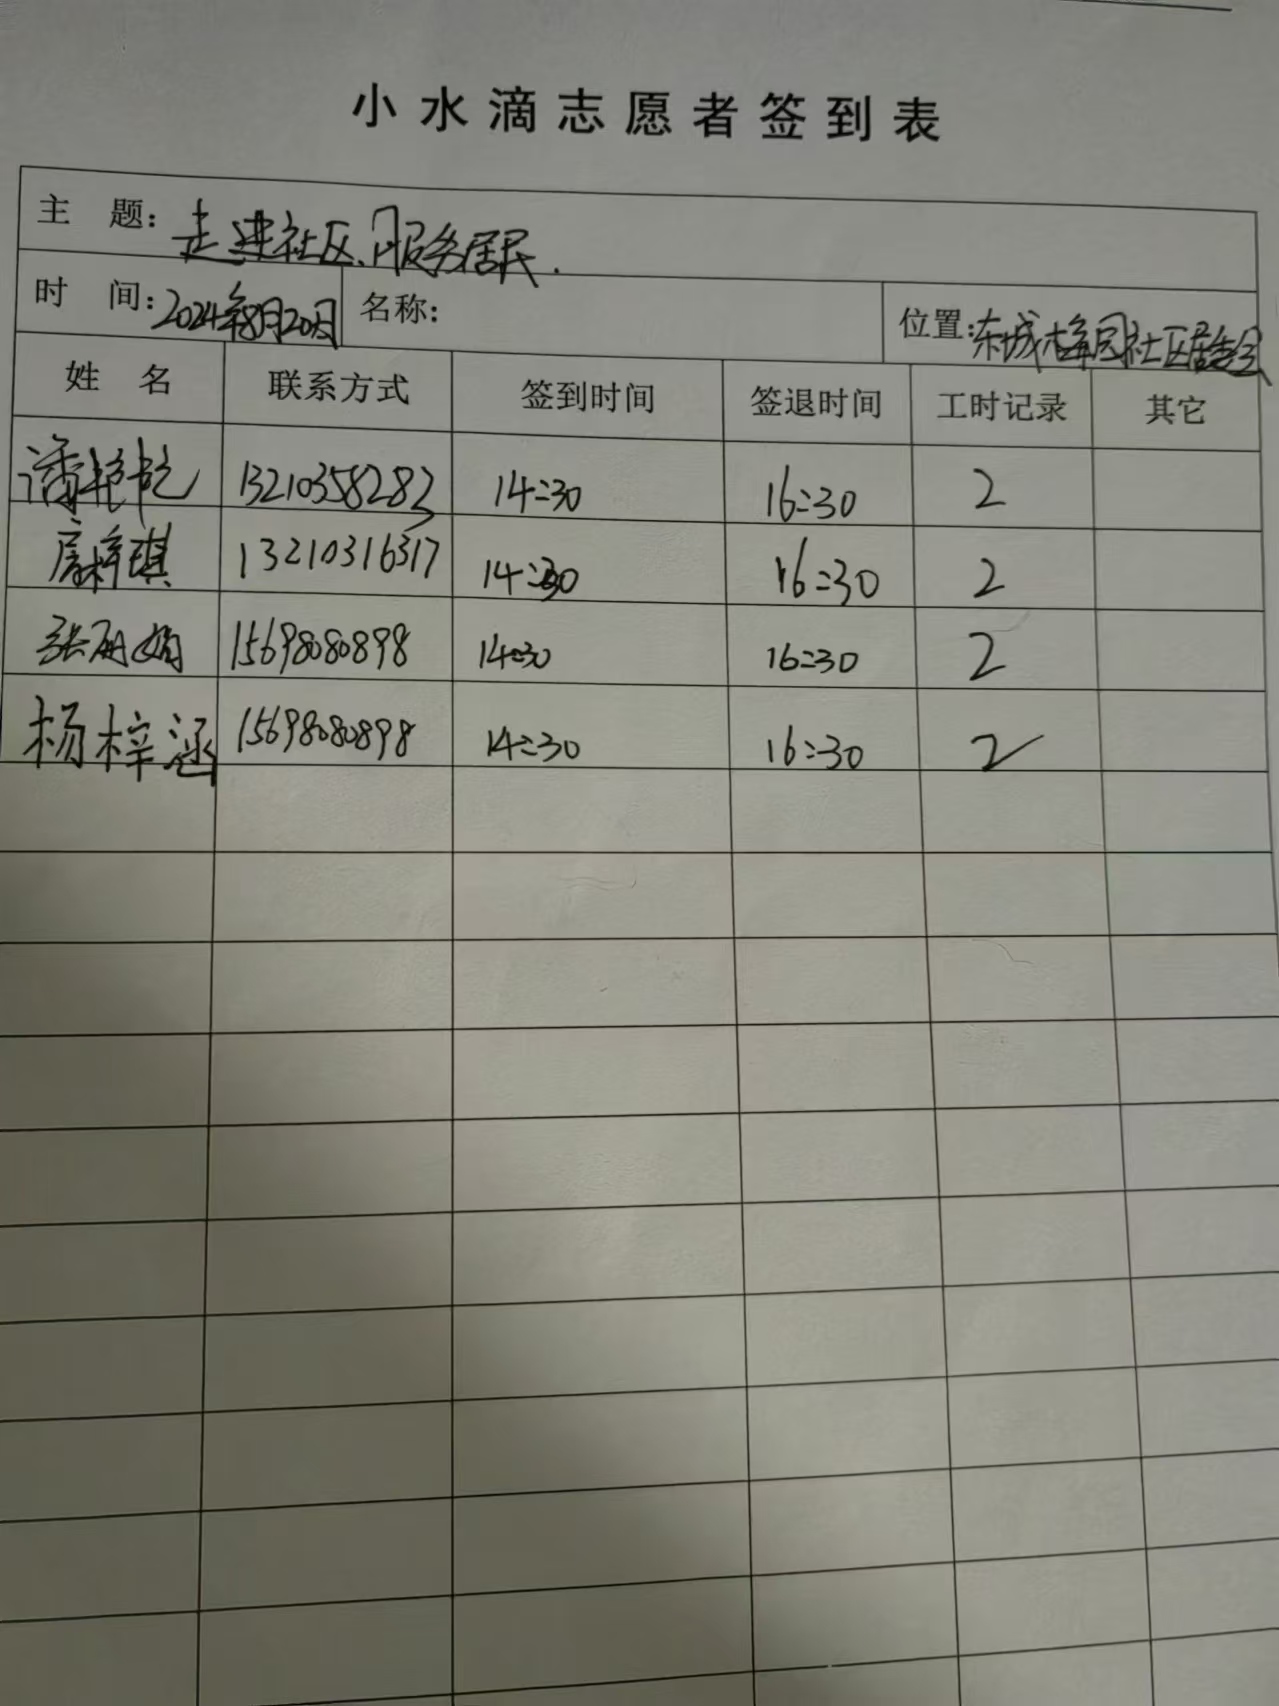 小水滴志愿者签到表
主 题: 走进社区、服务居民.
时 间: 2024年8月20日 名称: 位置: 东城梅园社区居委会
姓 名 联系方式 签到时间 签退时间 工时记录 其它
潘艳艳 13210358283 14:30 16:30 2
房梓琪 13210316317 14:30 16:30 2
张丽娟 15698080898 14:30 16:30 2
杨梓涵 15698080898 14:30 16:30 2